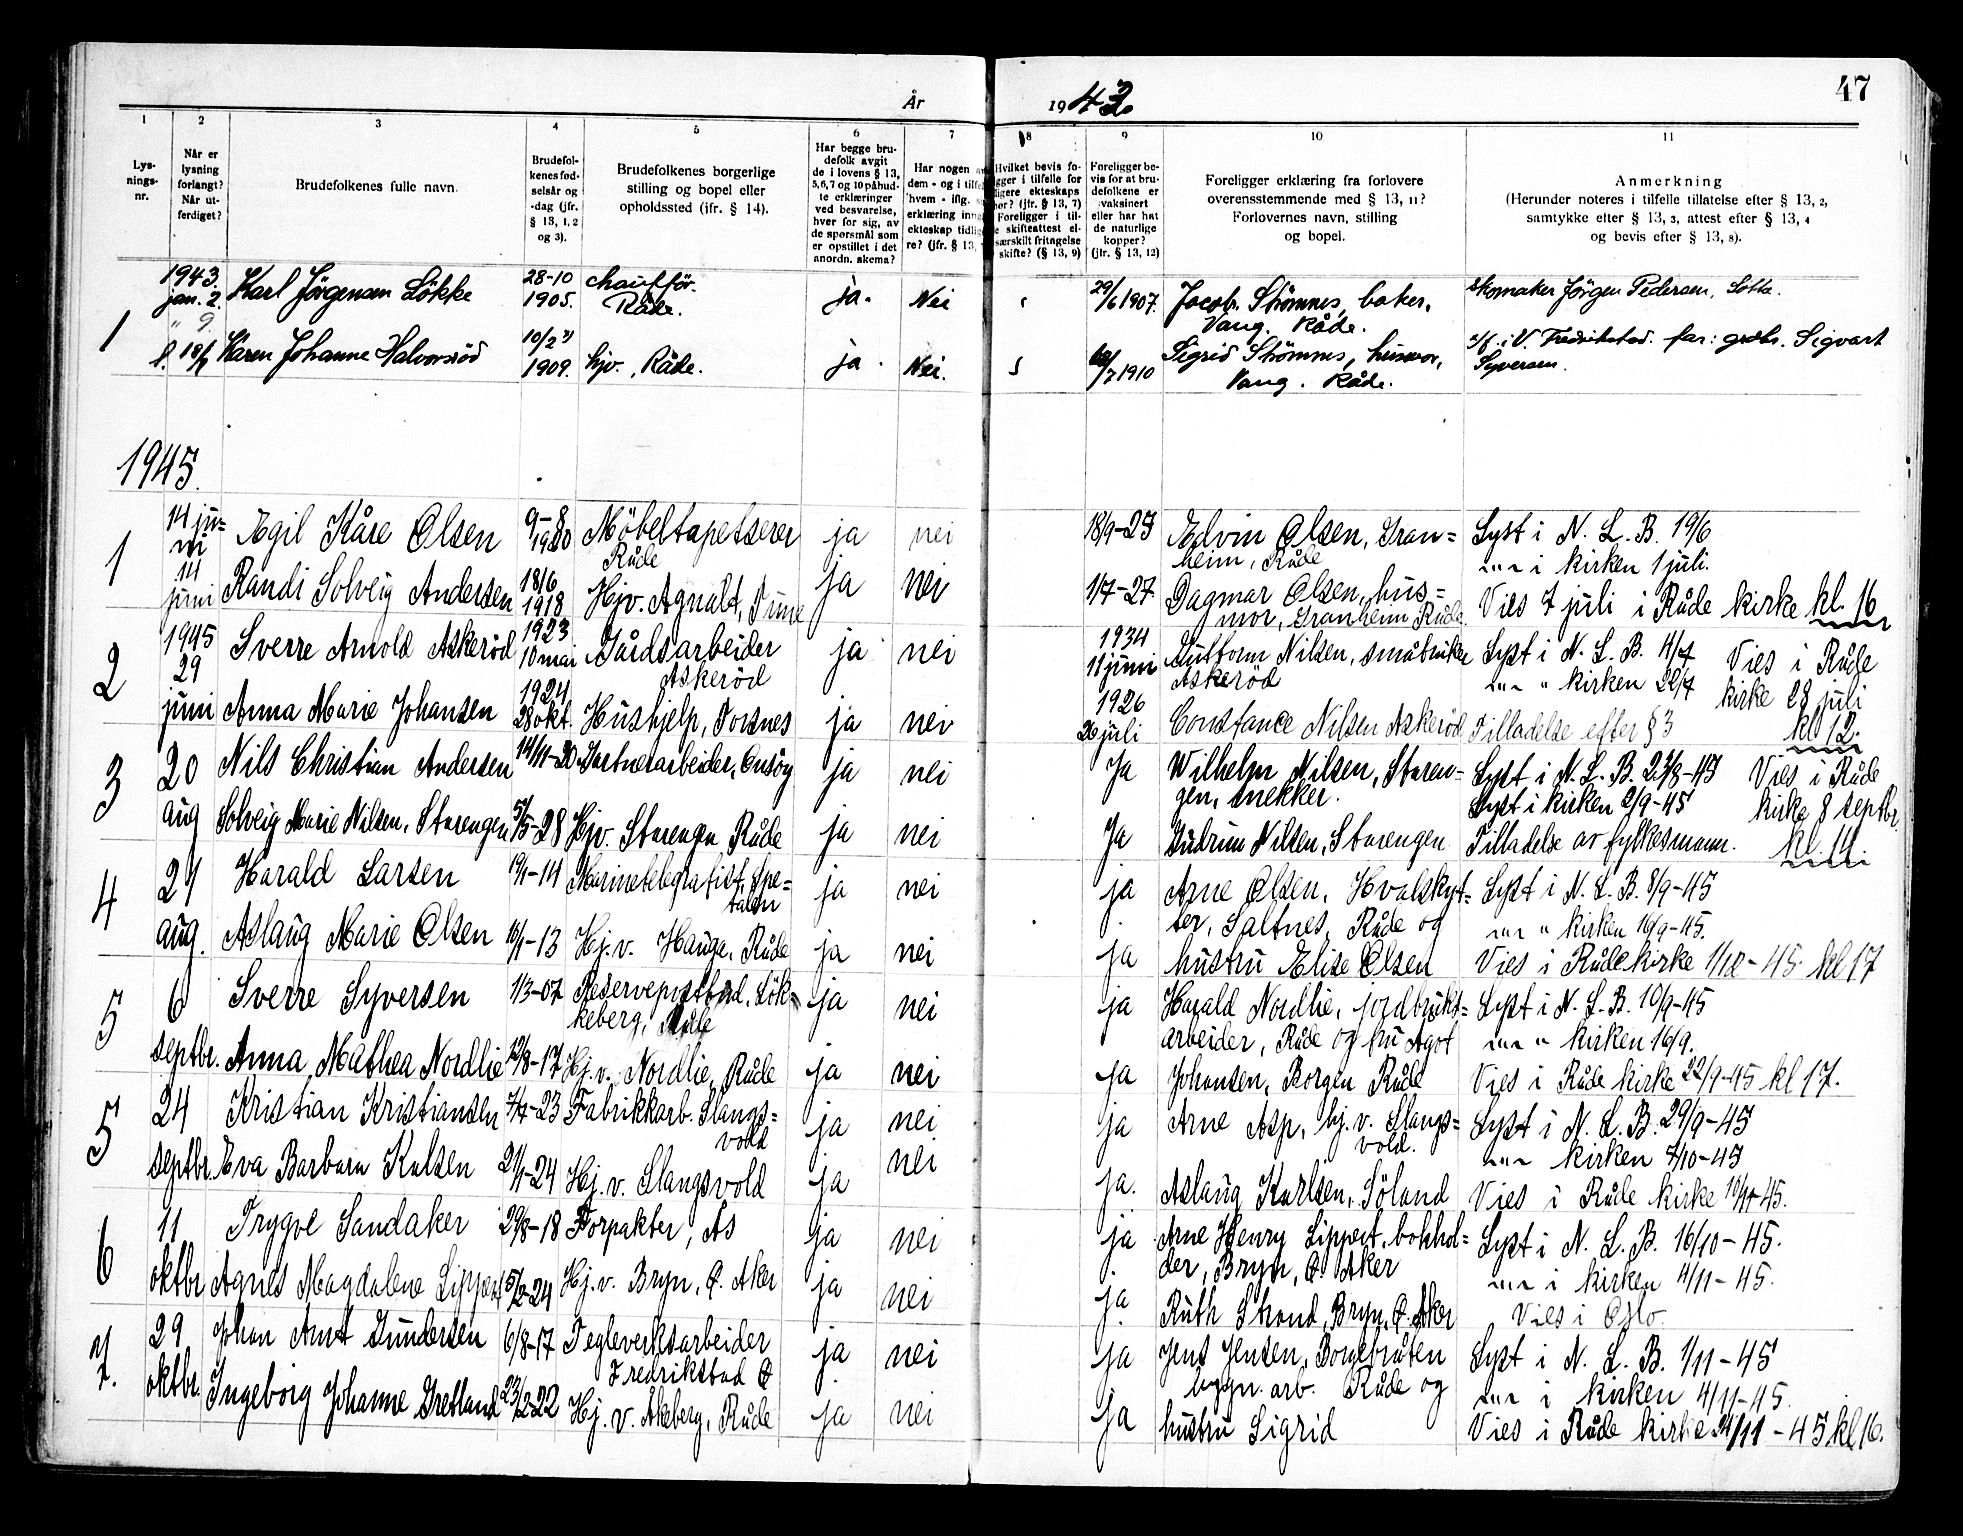 År 1943
47
1 2 3 4 5 6 7 8 9 10 11
Lys-
nings-
nr.
Når er
lysning
forlangt?
Når ut-
ferdiget?
Brudefolkenes fulle navn.
Brudefol-
kenes fød-
selsår og
-dag (jfr.
§ 13, 1, 2
og 3).
Brudefolkenes borgerlige
stilling og bopel eller
opholdssted (jfr. § 14).
Har begge bru-
defolk avgit
de i lovens § 13,
5, 6, 7 og 10 påbud-
te erklæringer
ved besvarelse,
hver for sig, av
de spørsmål som
er opstillet i det
anordn. skema?
Har nogen a
dem - og i tilfe
hvem - iflg.
erklæring inng
ekteskap tidlig
re? (jfr. § 13,
Hvilket bevis fo-
gger i tilfelle for
ligere ekteskaps
hør? (jfr. § 13, 7)
Foreligger i til-
e skifteattest el-
særskilt fritagelse
skifte? (§ 13, 9)
Foreligger be-
vis for at bru-
defolkene er
vaksinert
eller har hat
de naturlige
kopper?
(jfr. § 13, 12)
Foreligger erklæring fra forlovere
overensstemmende med § 13, 11?
Forlovernes navn, stilling
og bopel.
Anmerkning
(Herunder noteres i tilfelle tillatelse efter § 13, 2,
samtykke efter § 13, 3, attest efter § 13, 4
og bevis efter § 13, 8).
1943 28-10 chauffør. 29/6 1907. skomaker Jørgen Pedersen,
jan. 2. Karl Jørgensen Løkke 1905. Råde. ja. Nei Jacob Strømnes, baker,
" 9. Vang. Råde.
1 18/1 Karen Johanne Halvorsrød 10/2 1909. hjv., Råde. ja. Nei. /7 1910 Sigrid Strømnes, husmor, i V. Fredrikstad. far: Sigvart
Vang. Råde. Syversen.
1945.
1 14 ju- Egil Kåre Olsen 9-8 Møbeltapetserer ja nei 18/9-27 Edvin Olsen, Gran- Lyst i N. L. B. 19/6
ni 1920 Råde heim, Råde -"- i kirken 1 juli.
14 juni Randi Solveig Andersen 18/6 1918 Hjv. Agnalt, Tune ja nei 1/7-27 Dagmar Olsen, hus- Vies 7 juli i Råde kirke kl. 16
mor, Granheim Råde
2 1945 Sverre Arnold Askerød 1923 Gårdsarbeider ja nei 1934 Guttorm Nilsen, småbruker Lyst i N. L. B. 4/7 Vies i Råde
29 10 mai Askerød 11 juni Askerød -"- " kirken 22/7 kirke 28 juli
juni Anna Marie Johansen 1924 28 okt. Hushjelp, Torsnes ja nei 1926 26 juli Constance Nilsen Askerød Tilladelse efter § 3 kl 12.
3 20 Nils Christian Andersen 14/11-20 Gartnerarbeider, Onsøy ja nei Ja Wilhelm Nilsen, Støren- Lyst i N. L. B. 23/8-45 Vies i Råde
gen, snekker. Lyst i kirken 2/9-45 kirke 8 septbr.
aug Solveig Marie Nilsen, Størengen 5/5-28 Hjv. Størengen Råde ja nei Ja Gudrun Nilsen, Størengen Tilladelse av fylkesmann. kl. 14.
4 27 Harald Larsen 19/1-14 Marinetelegrafist, Spe- ja nei ja Arne Olsen, Hvalskyt- Lyst i N. L. B. 8/9-45
talen ter, Saltnes, Råde og -"- " kirken 16/9-45.
aug. Aslaug Marie Olsen 16/1-13 Hj.v. Hauge, Råde ja nei ja hustru Elise Olsen Vies i Råde kirke 1/12-45. kl 17
5 6 Sverre Syversen 1/3-07 Reservepostbud, Løk- ja nei ja Harald Nordlie, jordbruks- Lyst i N. L. B. 10/9-45
keberg, Råde arbeider, Råde og fru Agot -"- " kirken 16/9.
septbr. Anna Mathea Nordlie 12/8-17 Hj.v. Nordlie, Råde ja nei ja Johansen, Borgen Råde Vies i Råde kirke 22/9-45 kl 17.
5 24 Kristian Kristiansen 7/7-23 Fabrikkarb. Slangs- ja nei ja Arne Asp, hj.v. Slangs- Lyst i N. L. B. 29/9-45
vold vold. -"- kirken 7/10-45
septbr. Eva Barbara Karlsen 2/1-24 Hj.v. Slangsvold ja nei ja. Aslaug Karlsen, Söland Vies i Råde kirke 10/11-45.
6 11 Trygve Sandaker 29/8-18 Forpakter, As ja nei ja Arne Henry Lippert, bokhol- Lyst i N. L. B. 16/10-45.
der, Bryn, Ø. Aker -"- i kirken 4/11-45.
oktbr Agnes Magdalene Lippert 15/2-24 Hj.v. Bryn, Ø. Aker ja nei ja. Ruth Strand, Bryn, Ø. Aker Vies i Oslo.
7. 29 Johan Arnt Gundersen 6/8-17 Teglverksarbeider ja nei ja Jens Jensen, Borgebråten Lyst i N. L. B. 1/11-45
Fredrikstad Ø bygn. arb. Råde og -"- i kirken 4/11-45.
oktbr. Ingeborg Johanne Gretland 23/2-22 Hj.v. Åkeberg, Råde ja nei ja hustru Sigrid Vies i Råde kirke 24/11-45 kl 16.